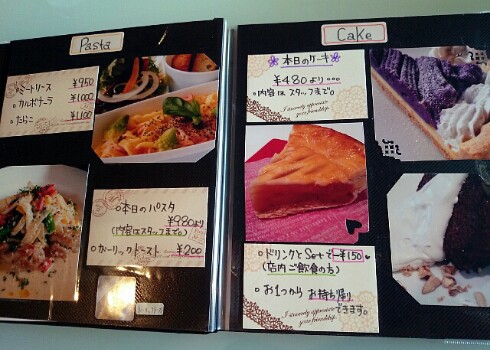 Pasta
○ミートソース ¥950
○カルボナーラ ¥1000
○たらこ ¥1,100
○本日のパスタ
¥980より
(内容はスタッフまで。)
○ガーリックトースト ¥200
Cake
本日のケーキ
¥480より…
○内容はスタッフまで。
I sincerely appreciate
your friendship.
○ドリンクとSetで-¥150
(店内ご飲食の方)
○お1つからお持ち帰り
できます。
I sincerely appreciate
your friendship.